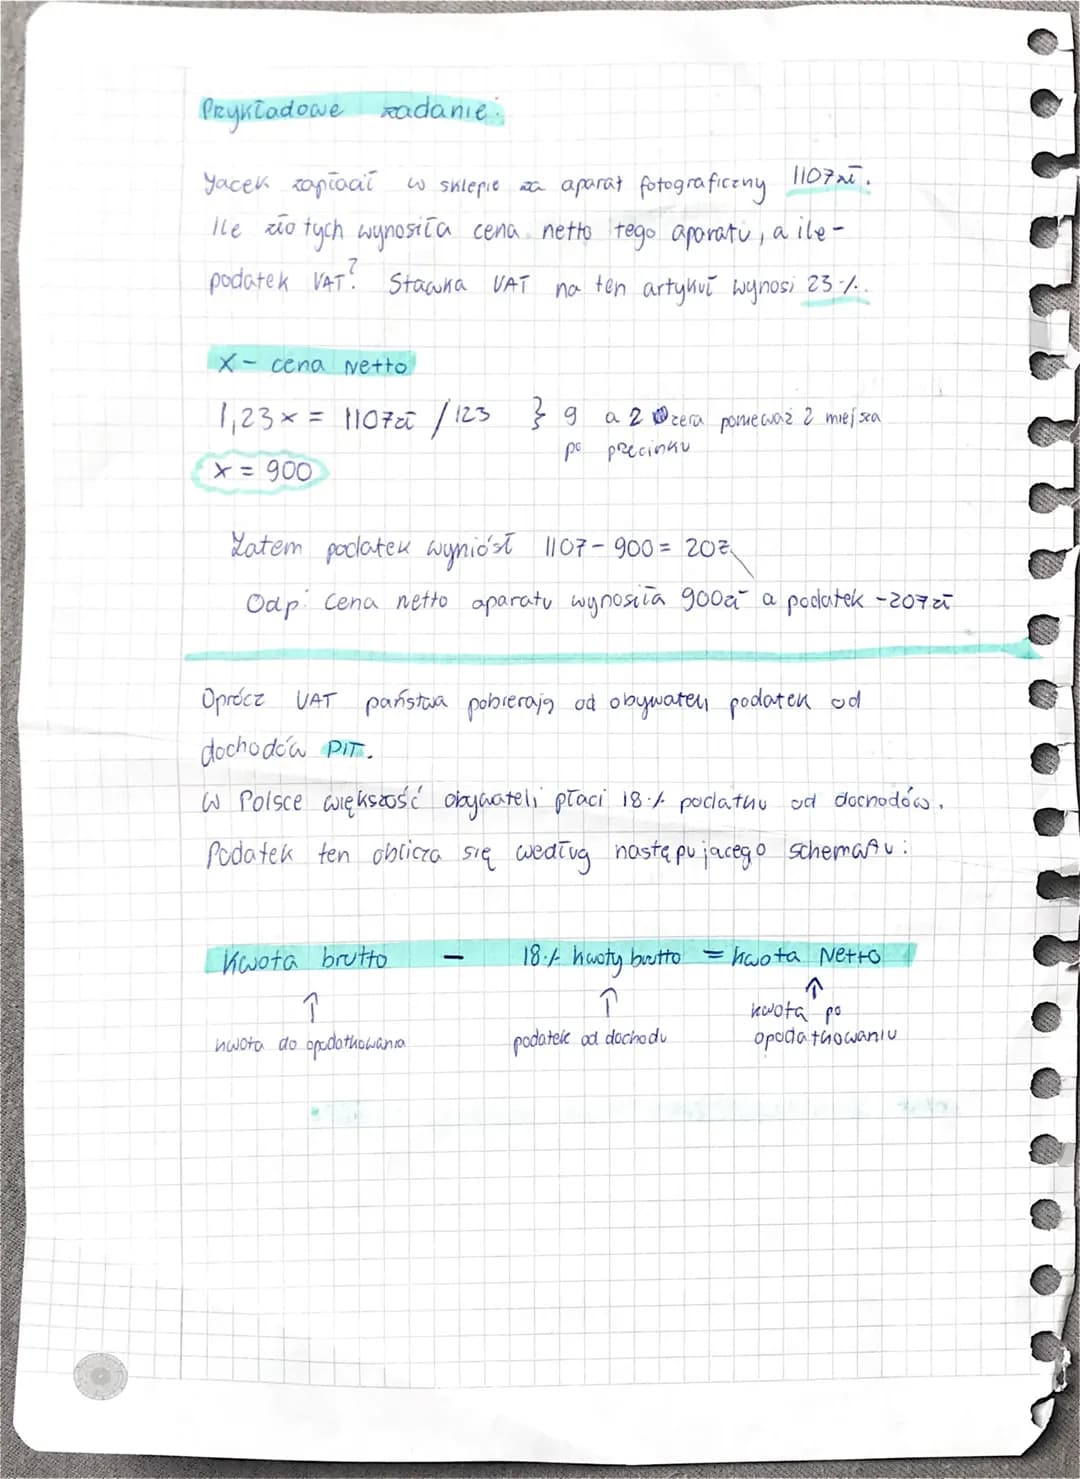 Przykładowe zadanie:
Jacek zapłacił w sklepie za aparat fotograficzny 1107zł.
Ile złotych wynosiła cena netto tego aparatu, a ile -
podatek VAT? Stawka VAT na ten artykuł wynosi 23%.
X - cena Netto
1,23x = 1107zł /123 } 9 a 2 zera ponieważ 2 miejsca
po przecinku
x = 900
Zatem podatek wyniósł 1107 - 900 = 207
Odp: Cena netto aparatu wynosiła 900zł a podatek - 207zł
Oprócz VAT państwa pobierają od obywateli podatek od
dochodów PIT.
W Polsce większość obywateli płaci 18% podatku od dochodów.
Podatek ten oblicza się według następujacego schematu:
Kwota brutto - 18% kwoty brutto = kwota Netto
↑ ↑ ↑
kwota do opodatkowania podatek od dochodu kwota po
opodatkowaniu